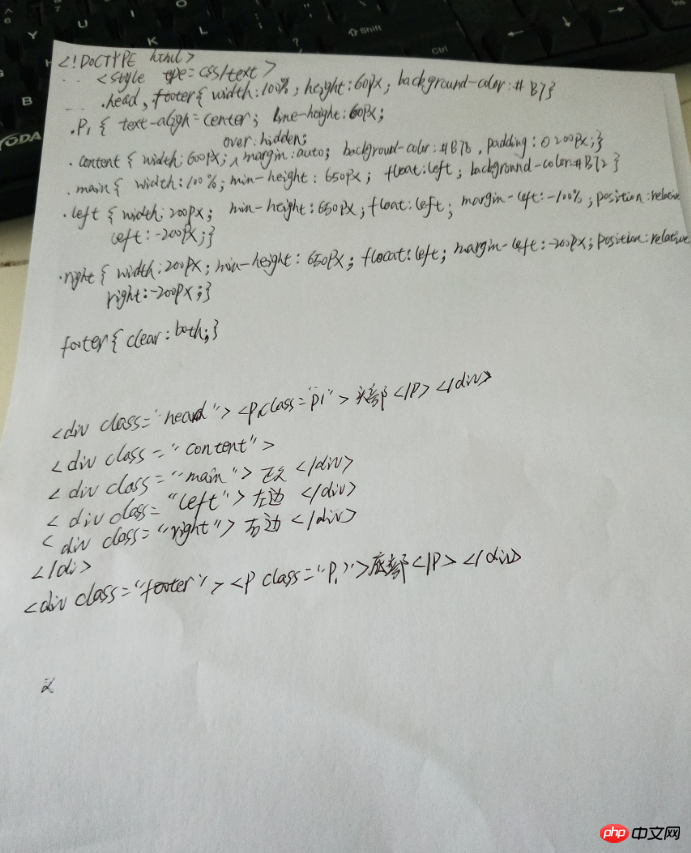 <!DOCTYPE html>
<style type=css/text>
.head, footer{ width:100%; height:60px; background-color:#B7}
.P1 { text-align=center; line-height:60px;
over:hidden;
.content { width:600px; margin:auto; background-color:#B76, padding:0 200px;}
.main{ width:100%; min-height:650px; float:left; background-color:#B12}
.left { width:200px; min-height:650px; float:left; margin-left:-100%; position:relative
left:-200px;}
.right { width:200px; min-height:650px; float:left; margin-left:-200px; position:relative
right:-200px;}
footer{ clear:both;}
<div class="head"> <P class="P1"> 头部 </P> </div>
<div class="content">
<div class="main"> 正文 </div>
<div class="left"> 左边 </div>
<div class="right"> 右边 </div>
</di>
<div class="footer"> <P class="P1"> 底部 </P> </div>
php 中文网